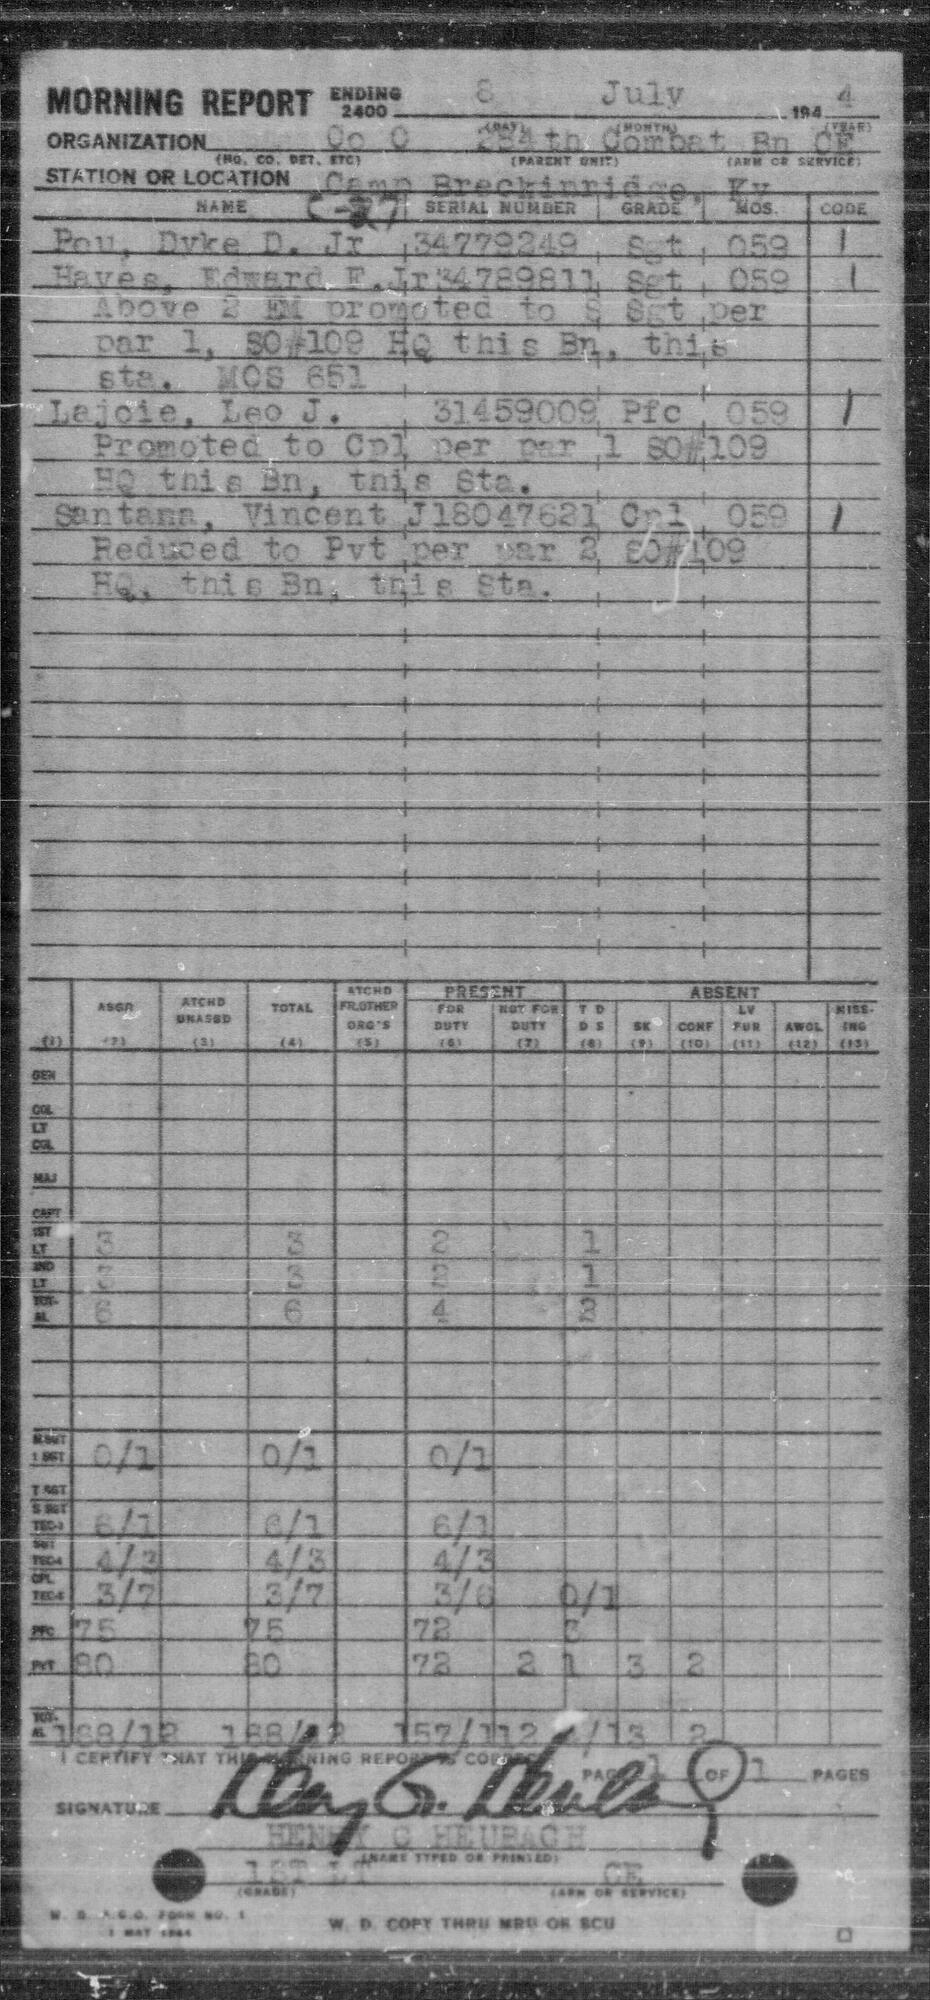 MORNING REPORT ENDING 2400 8 July 194 4
(DAY) (MONTH) (YEAR)
ORGANIZATION Co C 284th Combat Bn CE
(NO. CO. DET. ETC) (PARENT UNIT) (ARM OR SERVICE)
STATION OR LOCATION Camp Breckinridge, Ky
NAME SERIAL NUMBER GRADE MOS. CODE
Pou, Dyke D. Jr 34779249 Sgt 059 1
Hayes, Edward F.Jr 34789811 Sgt 059 1
Above 2 EM promoted to S Sgt per
par 1, SO#109 HQ this Bn, this
sta. MOS 651
Lajoie, Leo J. 31459009 Pfc 059 1
Promoted to Cpl per par 1 SO#109
HQ this Bn, this Sta.
Santana, Vincent J 18047621 Cpl 059 1
Reduced to Pvt per par 2 SO#109
HQ, this Bn, this Sta.
PRESENT ABSENT
ASGD ATCHD UNASGD TOTAL ATCHD FR.OTHER ORG'S FOR DUTY NOT FOR DUTY T D D S SK CONF LV FUR AWOL MISSING
(1) (2) (3) (4) (5) (6) (7) (8) (9) (10) (11) (12) (13)
GEN
COL
LT COL
MAJ
CAPT
1ST LT 3 3 2 1
2ND LT 3 3 2 1
TOTAL 6 6 4 2
M SGT
1 SGT 0/1 0/1 0/1
T SGT
S SGT
TEC-3 6/1 6/1 6/1
SGT
TEC-4 4/3 4/3 4/3
CPL
TEC-5 3/7 3/7 3/6 0/1
PFC 75 75 72 3
PVT 80 80 72 2 1 3 2
TOTAL 168/12 168/12 157/11 2 4/1 3 2
I CERTIFY THAT THIS MORNING REPORT IS CORRECT PAGE 1 OF 1 PAGES
SIGNATURE Henry G. Heubach
HENRY G HEUBACH
(NAME TYPED OR PRINTED)
1ST LT CE
(GRADE) (ARM OR SERVICE)
W. D. A.G.O. FORM NO. 1
1 MAY 1944
W. D. COPY THRU MRU OR SCU